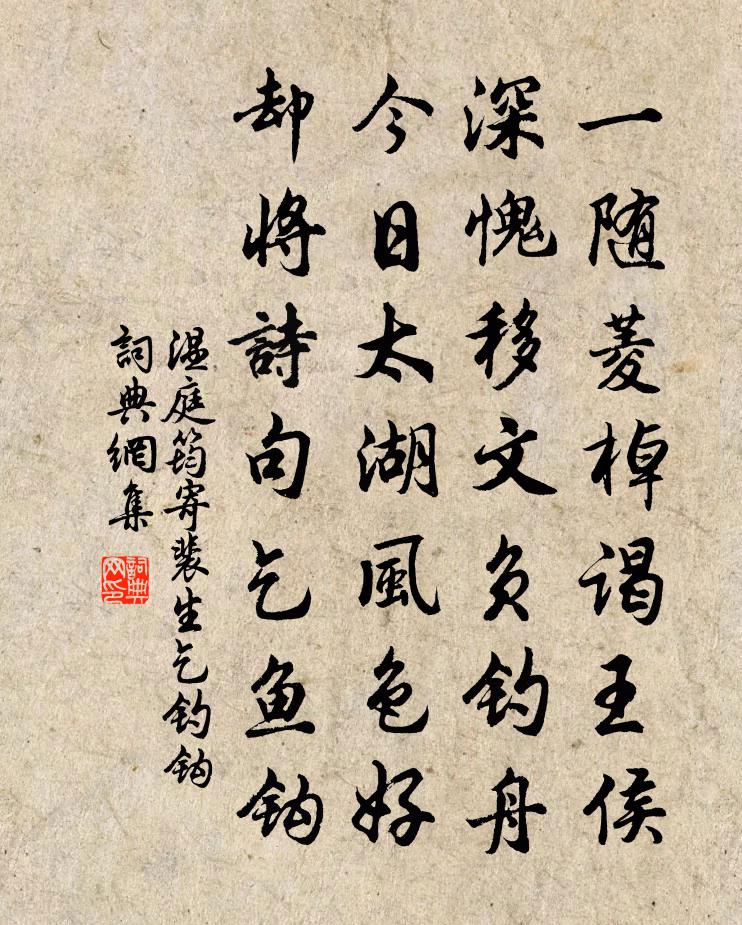 一随菱棹谒王侯
深愧移文负钓舟
今日太湖風色好
却将詩句乞鱼钩
温庭筠寄裴生乞钓钩
詞典網集
詞典网印